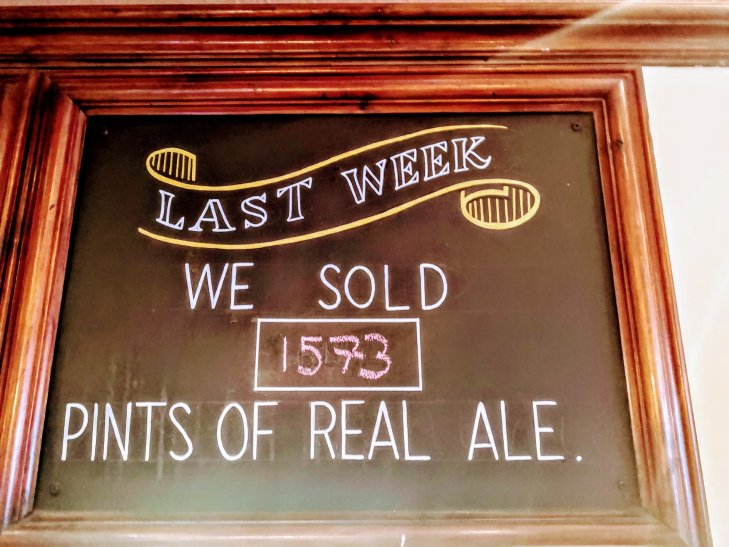 LAST WEEK
WE SOLD
1573
PINTS OF REAL ALE.